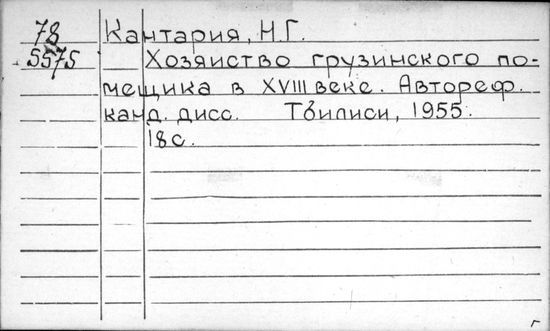 78 Кантария, Н.Г.
5575 Хозяйство грузинского по-
мещика в XVIII веке. Автореф.
канд. дисс. Тбилиси, 1955.
18с.
г